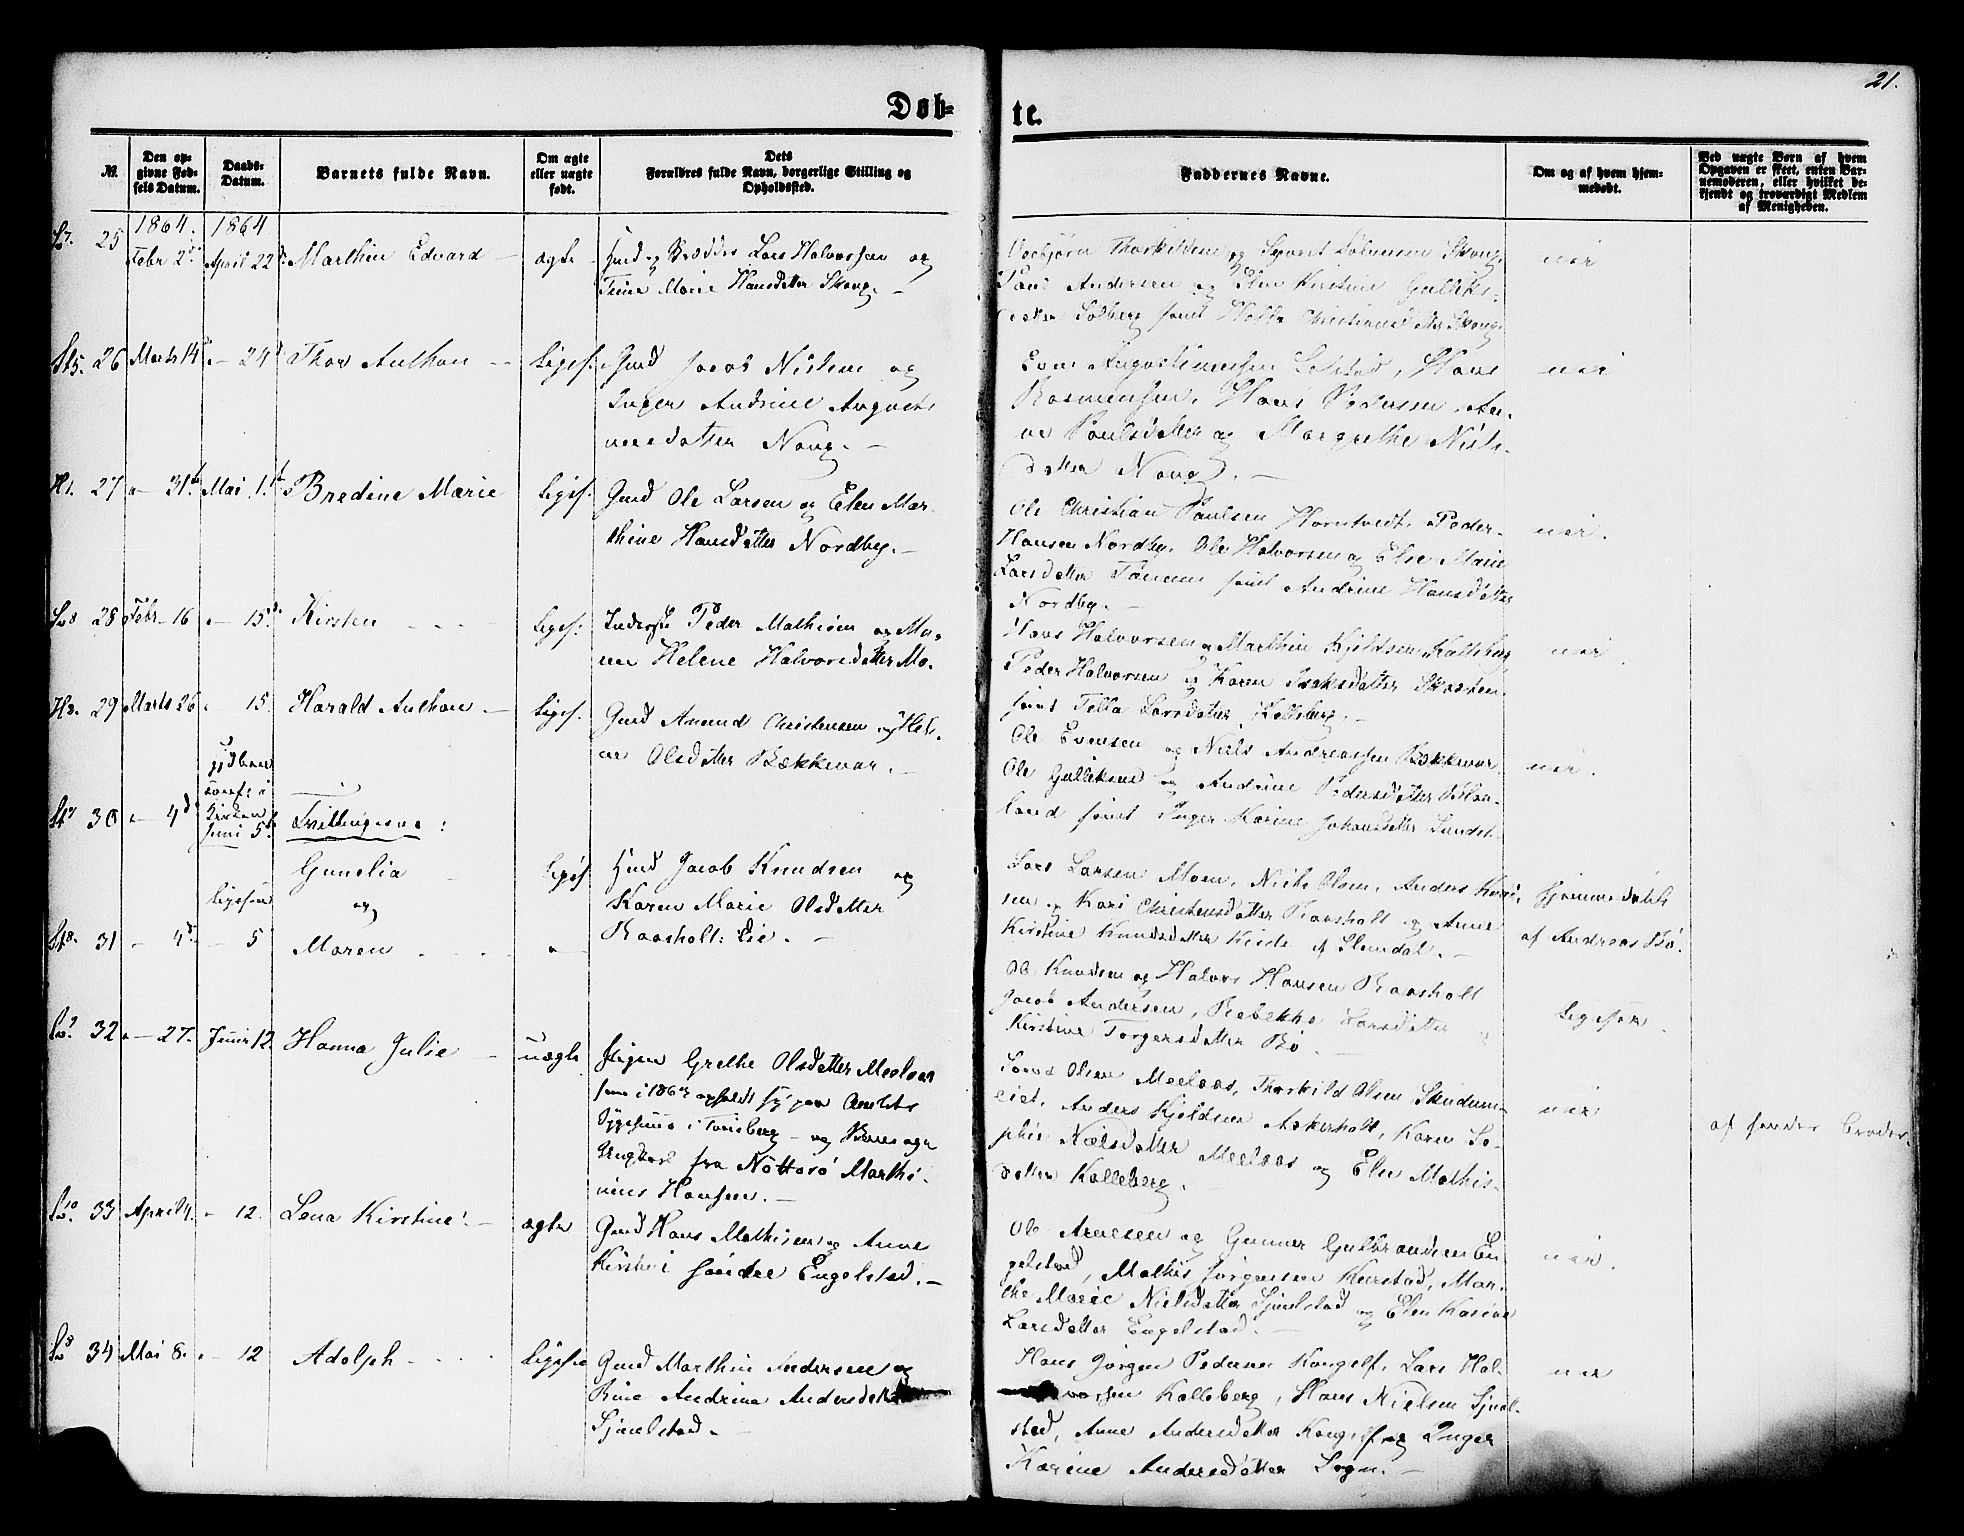 21.
Døb-
te.
№.
Den op-
givne Fød-
sels Datum.
Daabs-
Datum.
Barnets fulde Navn.
Om ægte
eller uægte
født.
Dets
Forældres fulde Navn, borgerlige Stilling og
Opholdssted.
Faddernes Navne.
Om og af hvem hjem-
medøbt.
Ved uægte Børn af hvem
Opgaven er skeet, enten Bar-
nemoderen, eller hvilket be-
kjendt og troværdigt Medlem
af Menigheden.
1864. 1864
25 Febr 2d. April 22d. Marthin Edvard - ægte
Lars Halvorsen og
Trine Marie Hansdatter Skoug. -
Thorkildsen og Syvert Sørensen Skoug,
Paul Andersen og Elen Kirstine Gulliks-
datter Solberg samt Christiansdatter Skoug
nei
26 Marts 14d. - 24d Thor Anthon - Ligel:
Gmd Jacob Nielsen og
Inger Andrine Augusti-
nusdatter Noug. -
Even Augustinussen Solstad, Hans
Rasmussen, Hans Pedersen, An-
ne Paulsdatter og Margrethe Niels-
datter Noug. -
nei
27 - 31te. Mai 1ste Bredine Marie Ligel:
Gmd Ole Larsen og Elen Mar-
thine Hansdatter Nordby. -
Ole Christian Paulsen Horntvedt, Peder
Hansen Nordby, Ole Halvorsen og Else Marie
Larsdatter samt Andrine Hansdatter
Nordby. -
nei.
28 Febr 16 - 15d. Kirsten - - - Ligel:
Inderst Peder Mathisen og Ma-
ren Helene Halvorsdatter Mo.
Hans Halvorsen og Marthin Kjeldsen Kalleberg
Peder Halvorsen og Karen Isaksdatter
samt Larsdatter Kalleberg. -
nei.
29 Marts 26 - 15. Harald Anthon - Ligel.
Gmd Amund Christensen og Hel-
ne Olsdatter Bækkevar. -
Ole Evensen og Niels Andreassen Bækkevar
Ole Gulliksen og Andrine Pedersdatter
land samt Inger Karine Johansdatter
nei.
i
Kirken
Juni 5te.
30 - 4d. Tvillingerne:
Gunelia -
og
Ligesaa
Ligel
Gmd Jacob Knudsen og
Karen Marie Olsdatter
Raasholt: Eie. -
Lars Larsen Moen, Niels Olsen, Anders
sen og Kari Christensdatter Raasholt og Anne
Kirstine Knudsdatter -
Hjemmedøbt
af Andreas Bø.
31 - 4d. - 5 Maren - - - -
Ole Knudsen og Halvor Hansen Raasholt
Jacob Andersen, Rebekka Larsdatter og
Kirstine Torgersdatter Bø
Ligesaa.
32 - 27. Juni 12. Hanna Julie - uægte
Pigen Grethe Olsdatter Meelaas
som i 1863 opholdt sig paa Amtets
Sygehuus i Tønsberg - og
Ungkarl fra Nøtterø Marthi-
nius Hansen. -
Olsen Meelaas, Thorkild Olsen
eiet, Anders Kjeldsen Askerholt, Karen So-
phie Nielsdatter Meelaas og Elen Mathis-
datter Kalleberg. -
nei
af hendes Broder.
33 April 4. - 12. Lena Kirstine - ægte
Gmd Hans Mathisen og Anne
Kirstine søndre Engelstad. -
Ole Arnesen og Gunner Gulbrandsen En-
gelstad, Mathis Jørgensen Kierstad, Mar-
the Marie Nielsdatter Sjuelstad og Elen Karine
Larsdatter Engelstad. -
nei.
34 Mai 8. - 12 Adolph - - - - Ligesaa
Gmd Marthin Andersen og
Andrine Andersdatter
Sjuelstad. -
Hans Jørgen Pedersen Kongelf, Lars Hal-
vorsen Kalleberg, Hans Nielsen Sjuel-
stad, Anne Andersdatter Kongelf og Inger
Karine Andersdatter Sogn. -
nei